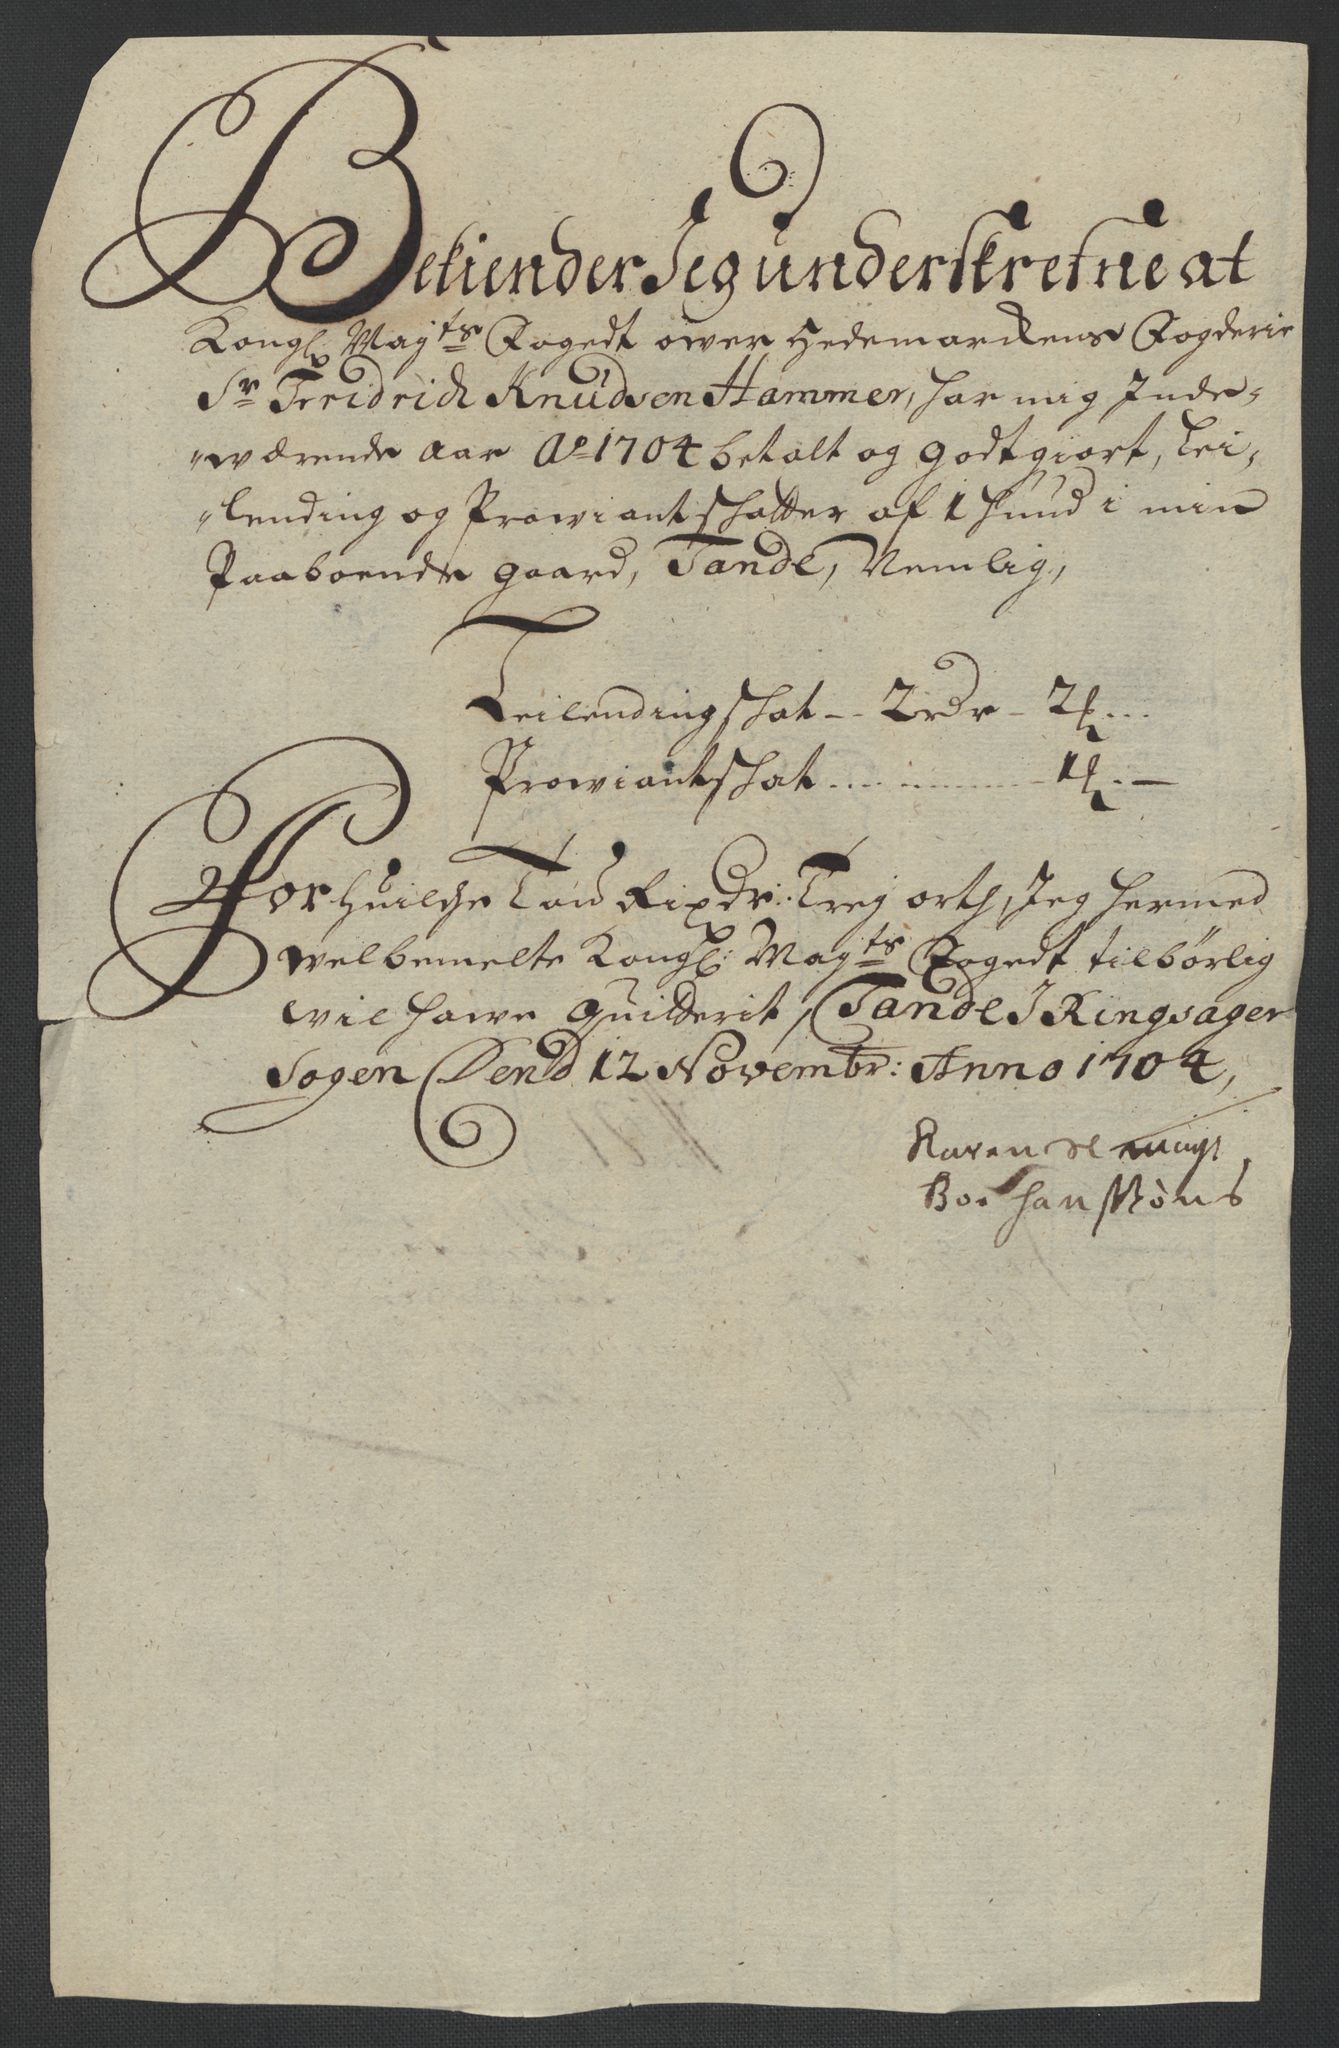 Bekiender Jeg underskrefne at
Kongl: Maÿts Fogedt ower Hedemarckens Fogderie
Sr Fridrich Knudsen Hammer, har mig Inde-
-wærende Aar Ao 1704 betalt og godtgiort, Lei-
-lending og Prowiantskatter af 1 hund i min
Paaboende gaard, Tande, Nemlig,
Leilendingskat -- 2 rdr - 2 ß ...
Prowiantskat .... ...... - 1 ß . -
For huilche Tou Rixdr: Trej orth, Jeg hermed
welbemelte Kongl: Mayts Fogedt tilbørlig
wil hawe quitterit, Tande J Ringsager
Sogen Dend 12 Novembr: Anno 1704,
Karen
Boe Hanssøns